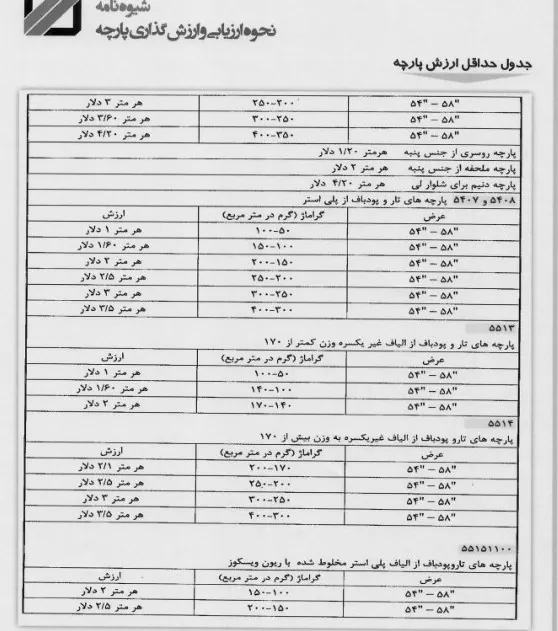 شیوه‌نامه
نحوه ارزیابی و ارزش گذاری پارچه
جدول حداقل ارزش پارچه
۵۴" – ۵۸" ۲۵۰-۲۰۰ هر متر ۳ دلار
۵۴" – ۵۸" ۳۰۰-۲۵۰ هر متر ۳/۶۰ دلار
۵۴" – ۵۸" ۴۰۰-۳۵۰ هر متر ۴/۲۰ دلار
پارچه روسری از جنس پنبه هرمتر ۱/۲۰ دلار
پارچه ملحفه از جنس پنبه هر متر ۲ دلار
پارچه دنیم برای شلوار لی هر متر ۴/۲۰ دلار
۵۴۰۸ و ۵۴۰۷ پارچه های تار و پودباف از پلی استر
عرض گراماژ (گرم در متر مربع) ارزش
۵۴" – ۵۸" ۱۰۰-۵۰ هر متر ۱ دلار
۵۴" – ۵۸" ۱۵۰-۱۰۰ هر متر ۱/۶۰ دلار
۵۴" – ۵۸" ۲۰۰-۱۵۰ هر متر ۲ دلار
۵۴" – ۵۸" ۲۵۰-۲۰۰ هر متر ۲/۵ دلار
۵۴" – ۵۸" ۳۰۰-۲۵۰ هر متر ۳ دلار
۵۴" – ۵۸" ۴۰۰-۳۰۰ هر متر ۳/۵ دلار
۵۵۱۳
پارچه های تار و پودباف از الیاف غیر یکسره وزن کمتر از ۱۷۰
عرض گراماژ (گرم در متر مربع) ارزش
۵۴" – ۵۸" ۱۰۰-۵۰ هر متر ۱ دلار
۵۴" – ۵۸" ۱۴۰-۱۰۰ هر متر ۱/۶۰ دلار
۵۴" – ۵۸" ۱۷۰-۱۴۰ هر متر ۲ دلار
۵۵۱۴
پارچه های تارو پودباف از الیاف غیریکسره به وزن بیش از ۱۷۰
عرض گراماژ (گرم در متر مربع) ارزش
۵۴" – ۵۸" ۲۰۰-۱۷۰ هر متر ۲/۱ دلار
۵۴" – ۵۸" ۲۵۰-۲۰۰ هر متر ۲/۵ دلار
۵۴" – ۵۸" ۳۰۰-۲۵۰ هر متر ۳ دلار
۵۴" – ۵۸" ۴۰۰-۳۰۰ هر متر ۳/۵ دلار
۵۵۱۵۱۱۰۰
پارچه های تاروپودباف از الیاف پلی استر مخلوط شده با ریون ویسکوز
عرض گراماژ (گرم در متر مربع) ارزش
۵۴" – ۵۸" ۱۵۰-۱۰۰ هر متر ۲ دلار
۵۴" – ۵۸" ۲۰۰-۱۵۰ هر متر ۲/۵ دلار